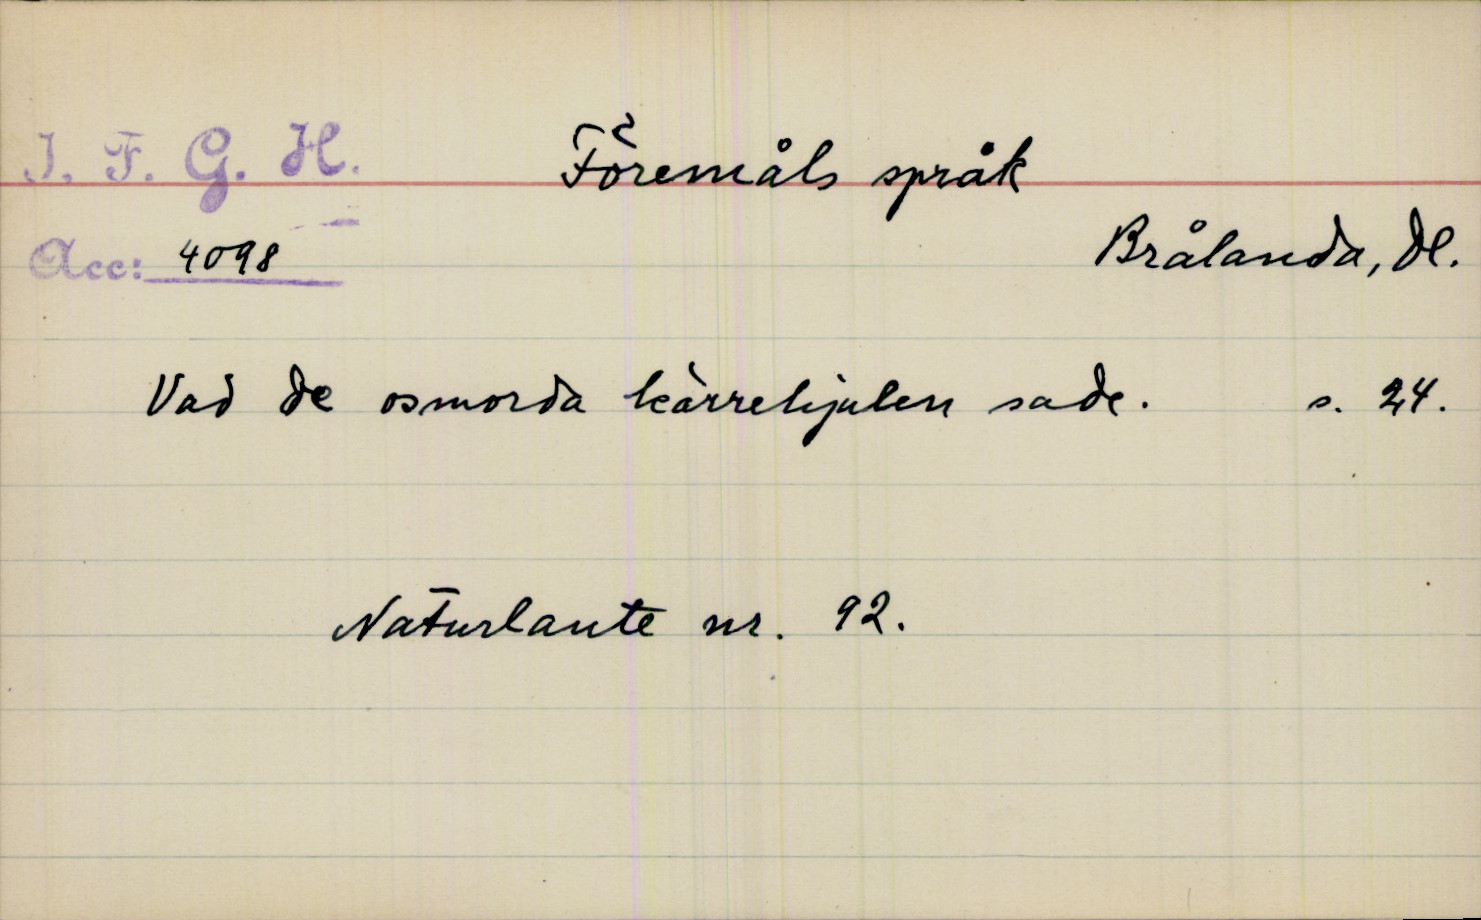 I. F. G. H.
Föremåls språk
Acc: 4098
Brålanda, Dl.
Vad de osmorda kärrehjulen sade. s. 24.
Naturlaute nr. 92.